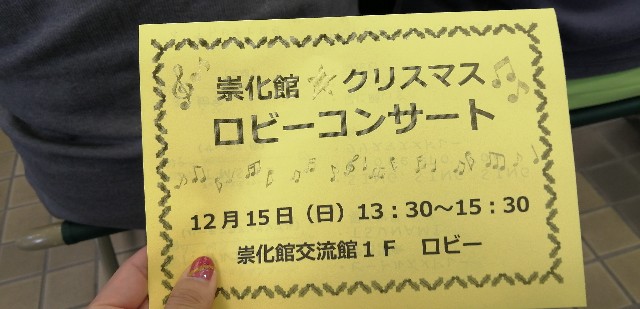 崇化館 クリスマス
ロビーコンサート
12月15日（日）13：30～15：30
崇化館交流館１Ｆ　ロビー